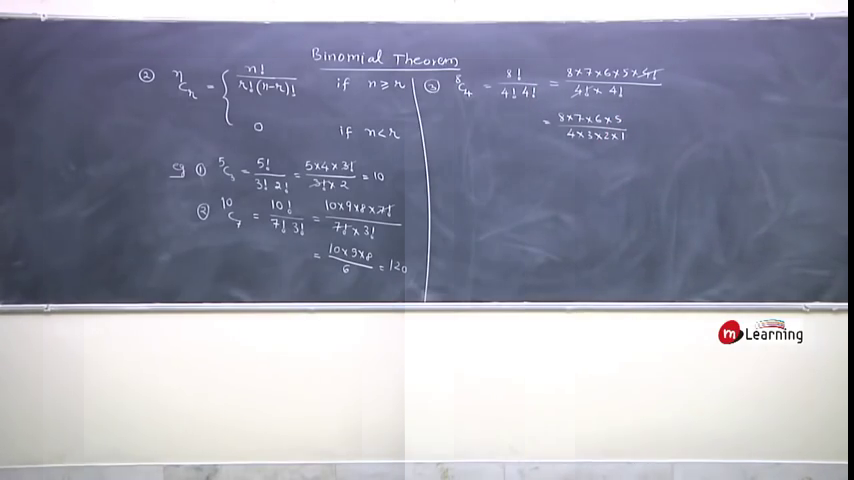 Binomial Theorem
② ⁿCᵣ = { n! / r!(n-r)! if n ≥ r
0 if n < r
eg ① ⁵C₃ = 5! / 3! 2! = 5×4×3! / 3!×2 = 10
② ¹⁰C₇ = 10! / 7! 3! = 10×9×8×7! / 7!×3!
= 10×9×8 / 6 = 120
③ ⁸C₄ = 8! / 4! 4! = 8×7×6×5×4! / 4!×4!
= 8×7×6×5 / 4×3×2×1
m Learning